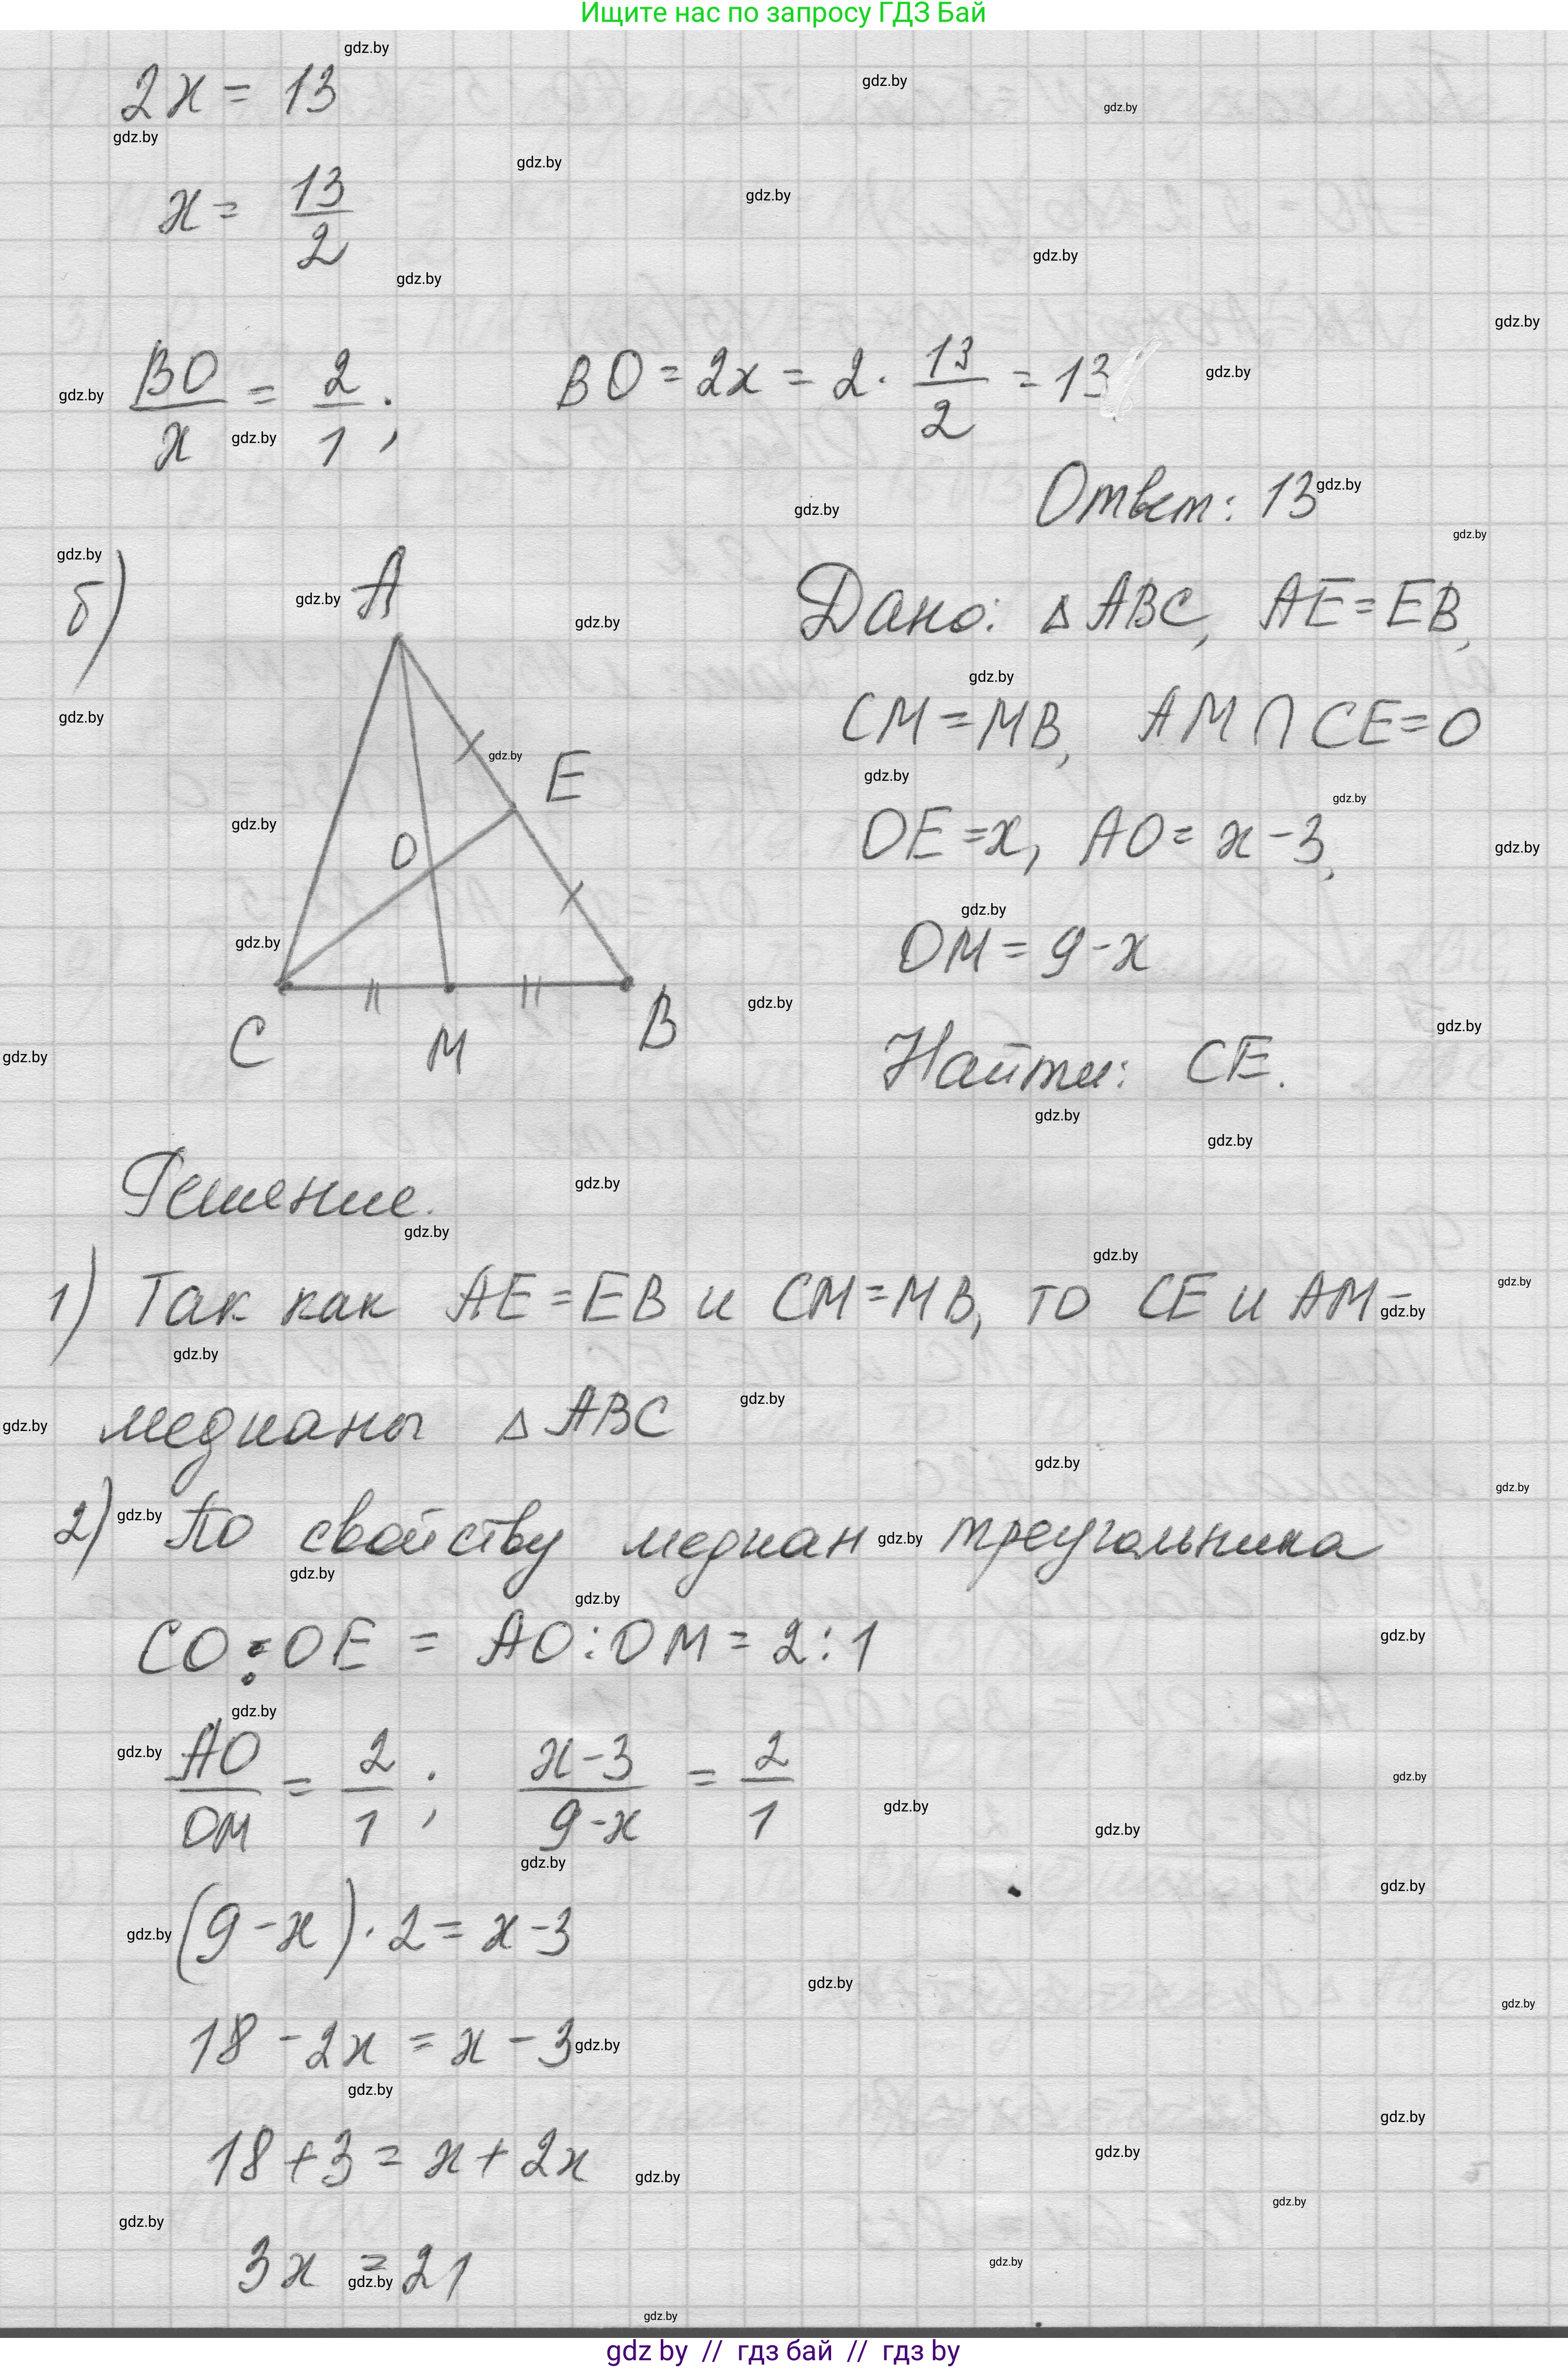 Ищите нас по запросу ГДЗ Бай
2x = 13
x = 13/2
BO/x = 2/1; BO = 2x = 2 · 13/2 = 13
Ответ: 13
б)
A
E
O
C
M
B
Дано: △ ABC, AE = EB,
CM = MB, AM ∩ CE = O
OE = x, AO = x - 3,
OM = 9 - x
Найти: CE.
Решение.
1) Так как AE = EB и CM = MB, то CE и AM -
медианы △ ABC
2) По свойству медиан треугольника
CO : OE = AO : OM = 2 : 1
AO/OM = 2/1; x - 3/9 - x = 2/1
(9 - x) · 2 = x - 3
18 - 2x = x - 3
18 + 3 = x + 2x
3x = 21
gdz.by
gdz by // гдз бай // гдз by